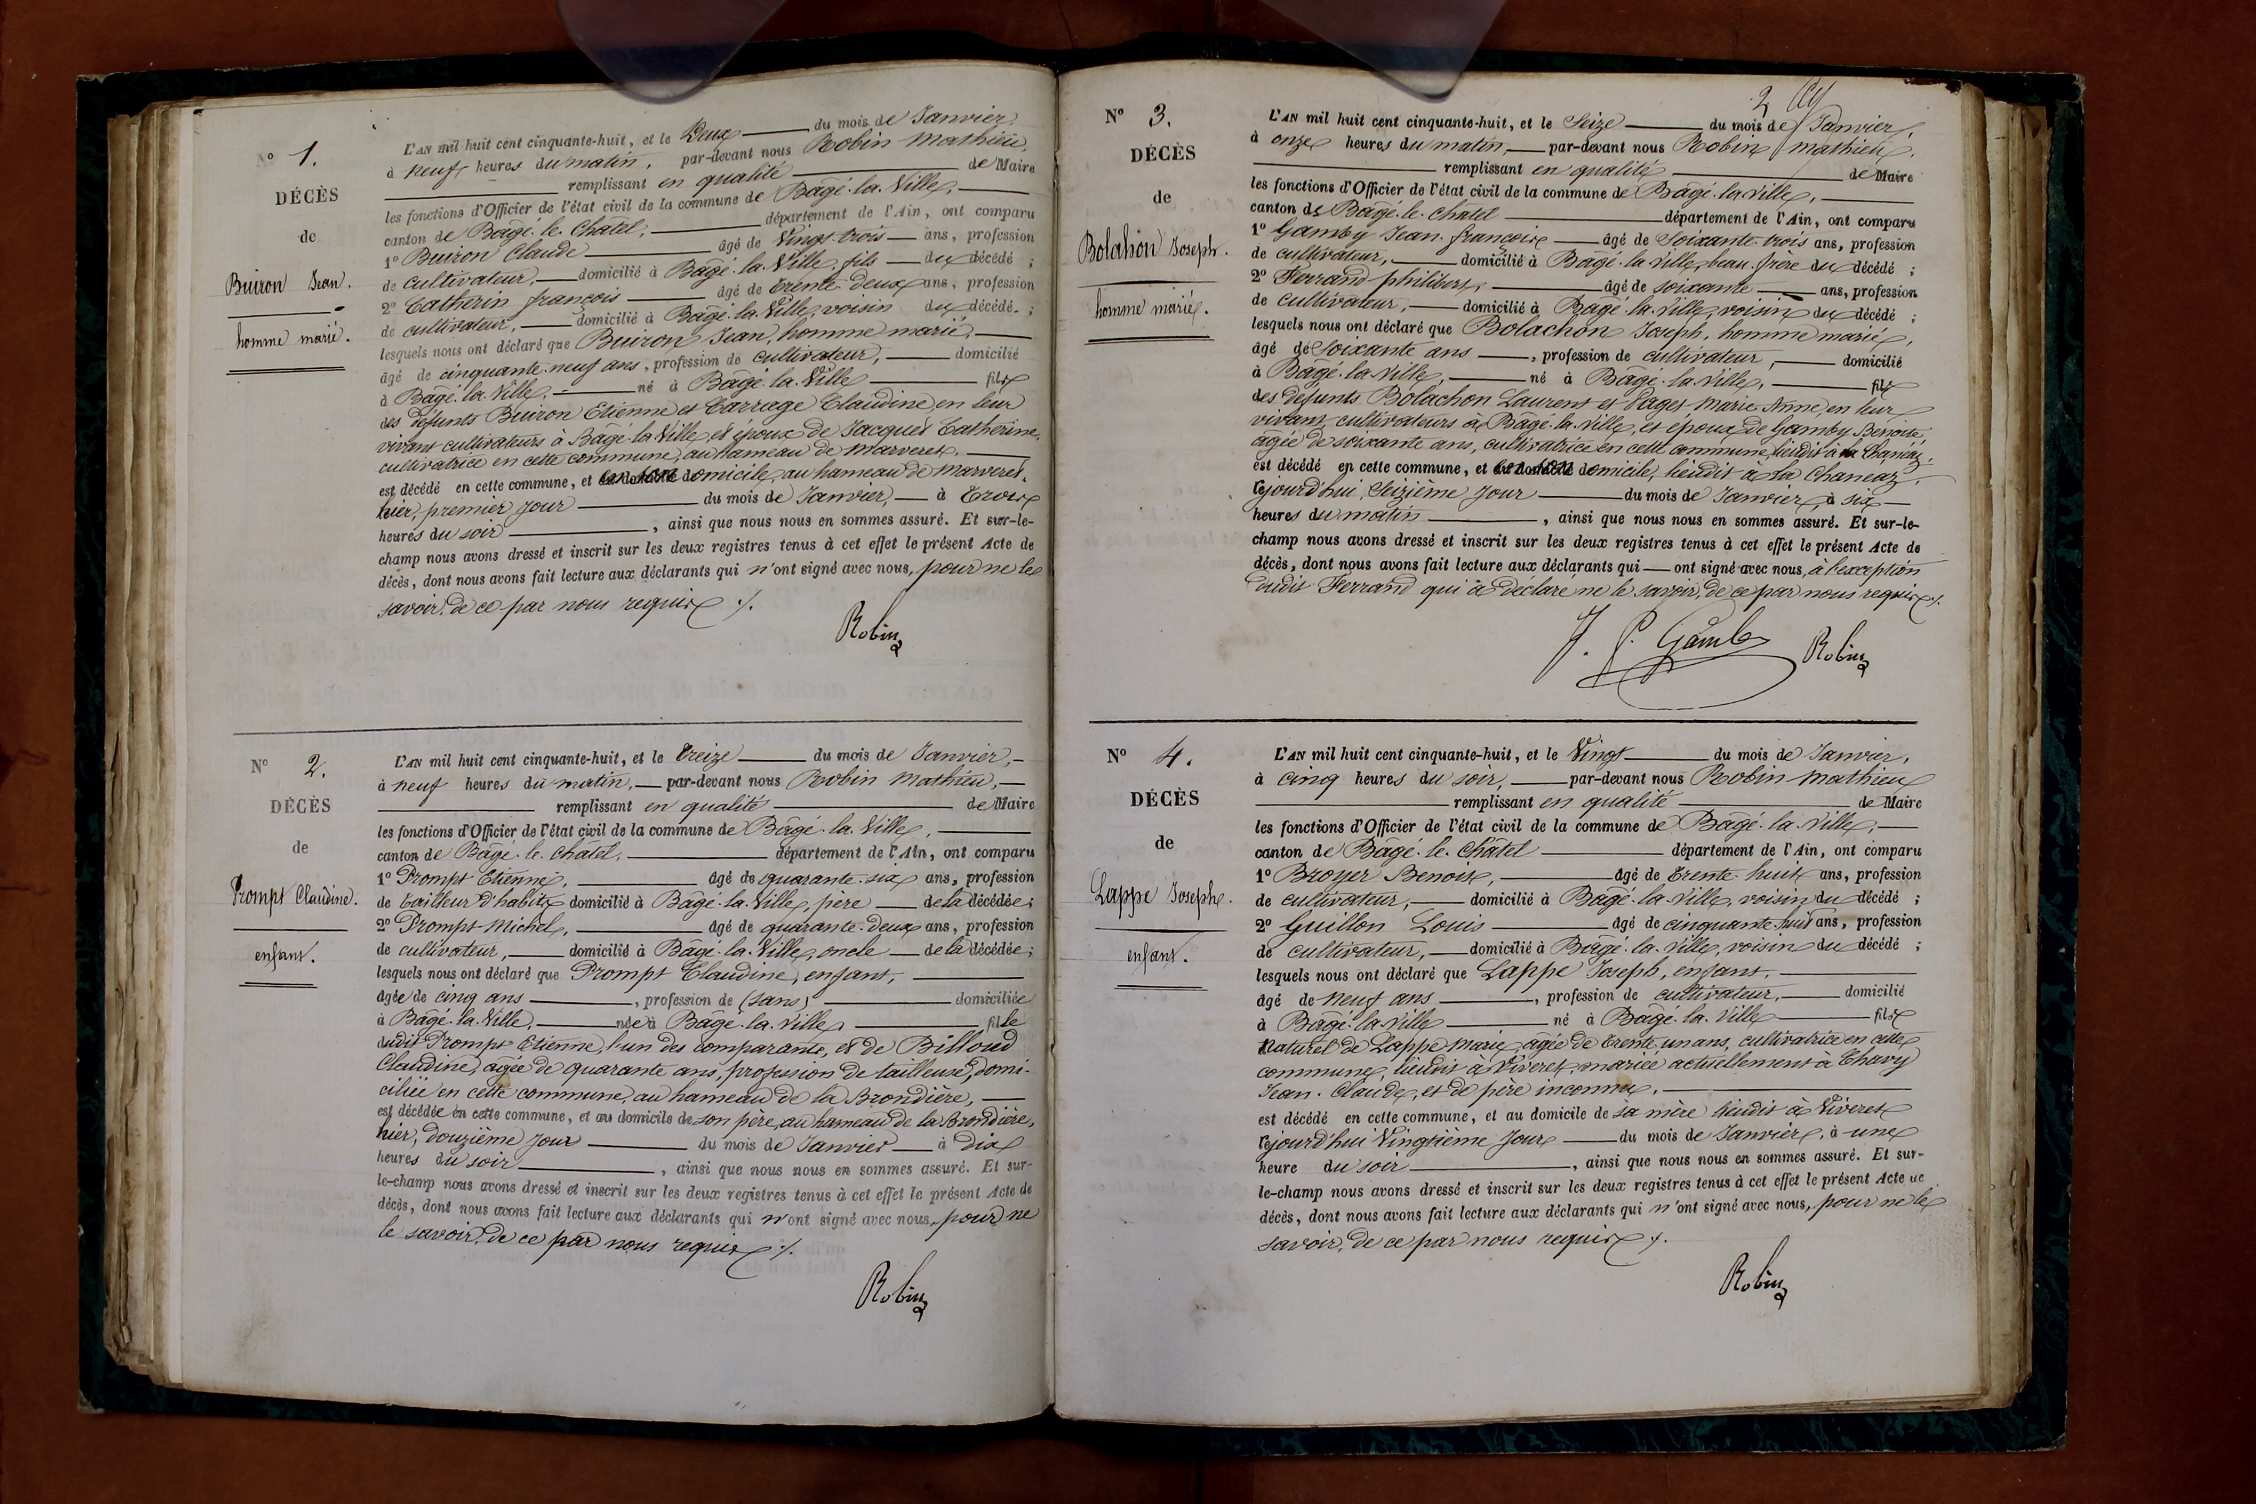 N° 1.
DÉCÈS
de
Buiron Jean.
homme marié.
L'AN mil huit cent cinquante-huit, et le Deux du mois de Janvier,
à neuf heures du matin, par-devant nous Robin Mathieu,
remplissant en qualité de Maire
les fonctions d'Officier de l'état civil de la commune de Bâgé-la-Ville,
canton de Bâgé-le-Châtel, département de l'Ain, ont comparu
1° Buiron Claude âgé de Vingt-trois ans, profession
de cultivateur, domicilié à Bâgé-la-Ville, fils du décédé ;
2° Catherin françois âgé de trente-deux ans, profession
de cultivateur, domicilié à Bâgé-la-Ville, voisin du décédé ;
lesquels nous ont déclaré que Buiron Jean, homme marié,
âgé de cinquante-neuf ans, profession de cultivateur, domicilié
à Bâgé-la-Ville, né à Bâgé-la-Ville fils
des défunts Buiron Etienne et Carrage Claudine, en leur
vivant cultivateurs à Bâgé-la-Ville, et époux de Jacquet Catherine,
cultivatrice en cette commune, au hameau de Marveret,
est décédé en cette commune, et en son domicile, au hameau de Marveret,
hier, premier jour du mois de Janvier, à trois
heures du soir, ainsi que nous nous en sommes assuré. Et sur-le-
champ nous avons dressé et inscrit sur les deux registres tenus à cet effet le présent Acte de
décès, dont nous avons fait lecture aux déclarants qui n'ont signé avec nous, pour ne le
savoir, de ce par nous requis ./.
Robin
N° 2.
DÉCÈS
de
Prompt Claudine.
enfant.
L'AN mil huit cent cinquante-huit, et le treize du mois de Janvier,
à neuf heures du matin, par-devant nous Robin Mathieu,
remplissant en qualité de Maire
les fonctions d'Officier de l'état civil de la commune de Bâgé-la-Ville,
canton de Bâgé-le-Châtel, département de l'Ain, ont comparu
1° Prompt Etienne, âgé de quarante-six ans, profession
de tailleur d'habits domicilié à Bâgé-la-Ville, père de la décédée ;
2° Prompt Michel, âgé de quarante-deux ans, profession
de cultivateur, domicilié à Bâgé-la-Ville, oncle de la décédée ;
lesquels nous ont déclaré que Prompt Claudine, enfant,
âgée de cinq ans, profession de (sans) domiciliée
à Bâgé-la-Ville, née à Bâgé-la-Ville, fille
dudit Prompt Etienne, l'un des comparants, et de Billoud
Claudine, âgée de quarante ans, profession de tailleuse, domi-
ciliée en cette commune, au hameau de la Brondière,
est décédée en cette commune, et au domicile de son père, au hameau de la Brondière,
hier, douzième jour du mois de Janvier à dix
heures du soir, ainsi que nous nous en sommes assuré. Et sur-
le-champ nous avons dressé et inscrit sur les deux registres tenus à cet effet le présent Acte de
décès, dont nous avons fait lecture aux déclarants qui n'ont signé avec nous, pour ne
le savoir, de ce par nous requis ./.
Robin
2
N° 3.
DÉCÈS
de
Bolachon Joseph.
homme marié.
L'AN mil huit cent cinquante-huit, et le Seize du mois de Janvier,
à onze heures du matin, par-devant nous Robin Mathieu,
remplissant en qualité de Maire
les fonctions d'Officier de l'état civil de la commune de Bâgé-la-Ville,
canton de Bâgé-le-Châtel département de l'Ain, ont comparu
1° Gamby Jean-françois âgé de soixante-trois ans, profession
de cultivateur, domicilié à Bâgé-la-Ville, beau-frère du décédé ;
2° Ferrand philibert, âgé de soixante ans, profession
de cultivateur, domicilié à Bâgé-la-Ville, voisin du décédé ;
lesquels nous ont déclaré que Bolachon Joseph, homme marié,
âgé de soixante ans, profession de cultivateur, domicilié
à Bâgé-la-Ville, né à Bâgé-la-Ville, fils
des défunts Bolachon Laurent et Paget Marie-Anne, en leur
vivant cultivateurs à Bâgé-la-Ville, et époux de Gamby Benoite,
âgée de soixante ans, cultivatrice en cette commune, lieudit à la Chaneaz,
est décédé en cette commune, et en son domicile, lieudit à la Chaneaz,
cejourd'hui seizième jour du mois de Janvier, à six
heures du matin, ainsi que nous nous en sommes assuré. Et sur-le-
champ nous avons dressé et inscrit sur les deux registres tenus à cet effet le présent Acte de
décès, dont nous avons fait lecture aux déclarants qui ont signé avec nous, à l'exception
dudit Ferrand qui a déclaré ne le savoir, de ce par nous requis ./.
J. f. Gamb Robin
N° 4.
DÉCÈS
de
Lappe Joseph.
enfant.
L'AN mil huit cent cinquante-huit, et le Vingt du mois de Janvier,
à cinq heures du soir, par-devant nous Robin Mathieu
remplissant en qualité de Maire
les fonctions d'Officier de l'état civil de la commune de Bâgé-la-Ville,
canton de Bâgé-le-Châtel département de l'Ain, ont comparu
1° Broyer Benoit, âgé de trente-huit ans, profession
de cultivateur, domicilié à Bâgé-la-Ville, voisin du décédé ;
2° Guillon Louis âgé de cinquante-huit ans, profession
de cultivateur, domicilié à Bâgé-la-Ville, voisin du décédé ;
lesquels nous ont déclaré que Lappe Joseph, enfant,
âgé de neuf ans, profession de cultivateur, domicilié
à Bâgé-la-Ville né à Bâgé-la-Ville fils
naturel de Lappe Marie, âgée de trente-un ans, cultivatrice en cette
commune, lieudit à Viveret, mariée actuellement à Chavy
Jean-Claude, et de père inconnu,
est décédé en cette commune, et au domicile de sa mère lieudit à Viveret
cejourd'hui Vingtième jour du mois de Janvier, à une
heure du soir, ainsi que nous nous en sommes assuré. Et sur-
le-champ nous avons dressé et inscrit sur les deux registres tenus à cet effet le présent Acte de
décès, dont nous avons fait lecture aux déclarants qui n'ont signé avec nous, pour ne le
savoir, de ce par nous requis ./.
Robin